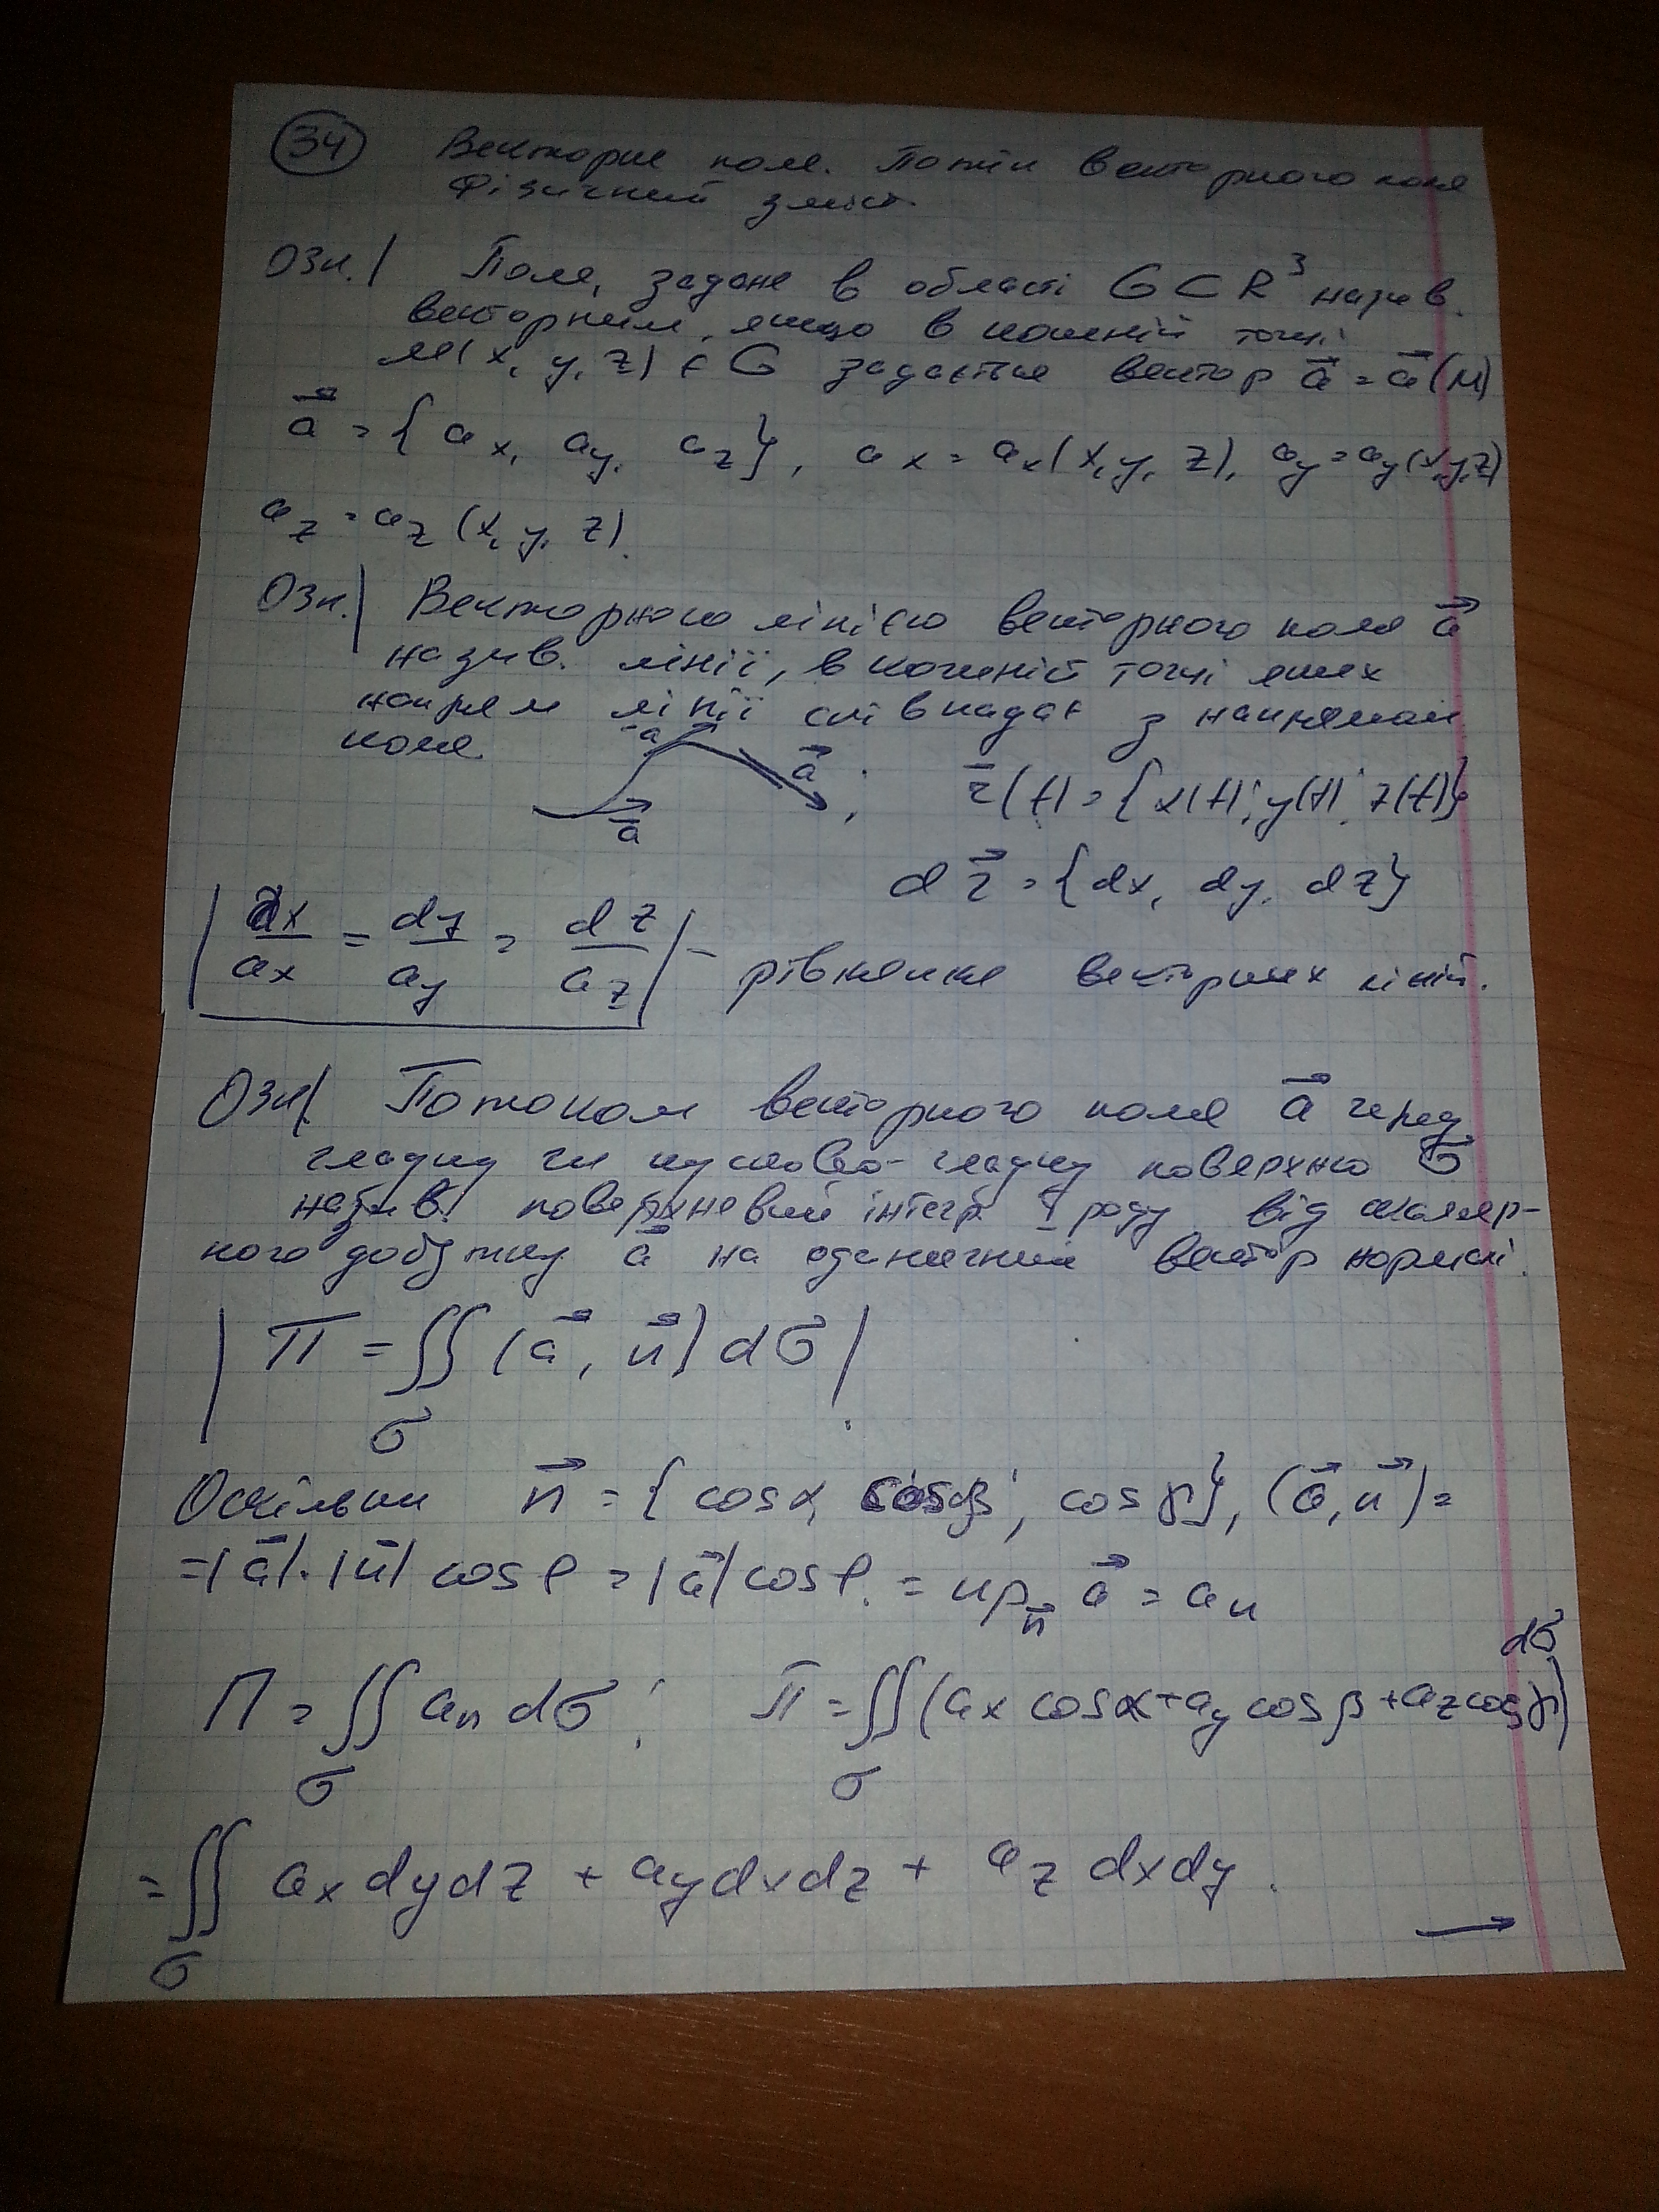 34 Векторне поле. Потік векторного поля
Фізичний зміст.
Озн. | Поле, задане в області G ⊂ R³ назив.
векторним, якщо в кожній точці
M(x, y, z) ∈ G задається вектор a⃗ = a⃗(M)
a⃗ = {ax, ay, az}, ax = ax(x, y, z), ay = ay(x, y, z)
az = az (x, y, z).
Озн. | Векторною лінією векторного поля a⃗
назив. лінії, в кожній точці яких
напрям лінії співпадає з напрямом
поля.
a̅ a⃗ a̅ ; r̅(t) = {x(t); y(t); z(t)}
dr⃗ = {dx, dy, dz}
| dx/ax = dy/ay = dz/az | – рівняння векторних ліній.
Озн | Потоком векторного поля a⃗ через
гладку чи кусково-гладку поверхню σ
назив. поверхневий інтегр. I роду від скаляр-
ного добутку a⃗ на одиничний вектор нормалі.
| П = ∬σ (a⃗, n⃗) dσ |.
Оскільки n⃗ = {cosα, cosβ, cosγ}, (a⃗, n⃗) =
= |a⃗|·|n⃗| cosφ = |a⃗| cosφ = npn⃗ a⃗ = an
П = ∬σ an dσ ; П = ∬σ (ax cosα + ay cosβ + az cosγ) dσ
= ∬σ ax dydz + ay dxdz + az dxdy.
→